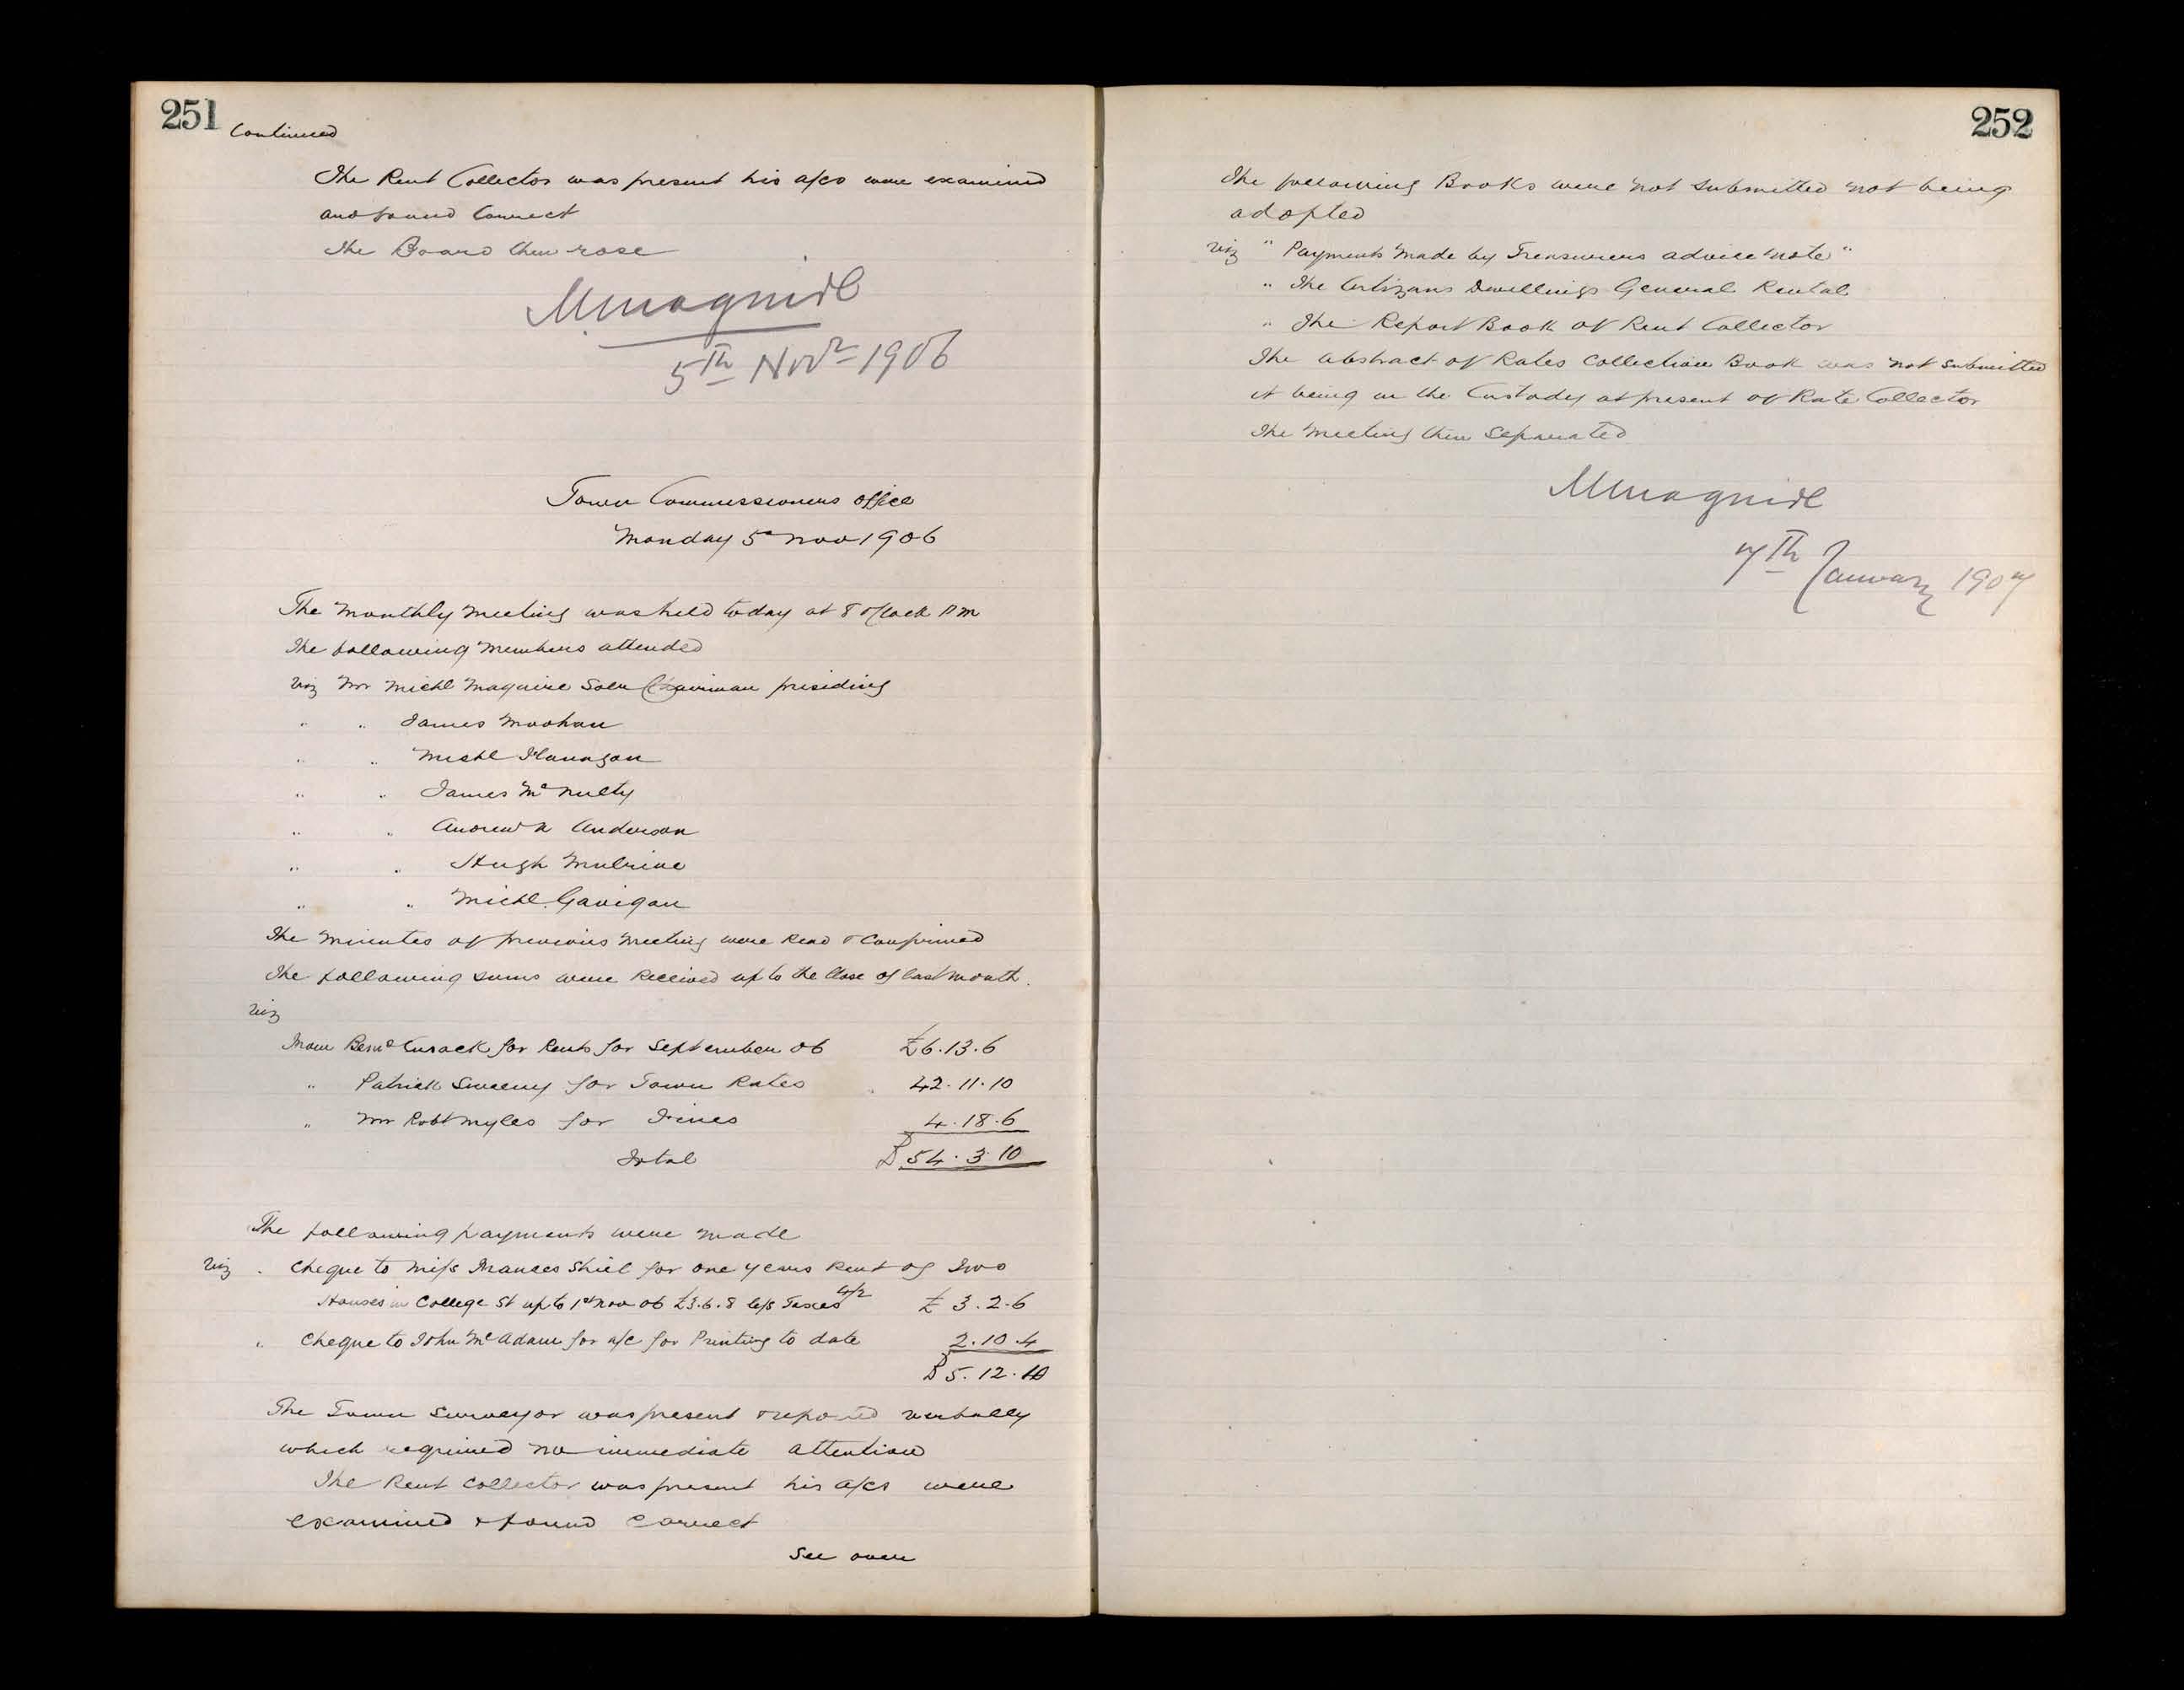 251 Continued
The Rent Collector was present his a/cs were examined
and found Correct
The Board then rose
M Maguire
5th Novr 1906
Town Commissioners Office
Monday 5th Nov 1906
The Monthly Meeting was held today at 8 o'Clock PM
The following Members attended
Viz Mr Michl Maguire Solr Chairman presiding
" " James Moohan
" " Michl Flanagan
" " James Mc Nulty
" " Andrew A Anderson
" " Hugh Mulrine
" " Michl. Gavigan
The Minutes of previous Meeting were Read & Confirmed
The following sums were Received up to the Close of last Month.
Viz
From Bernd Cusack for Rents for September 06 £6.13.6
" Patrick Sweeny for Town Rates 42.11.10
" Mr Robt Myles for Fines 4.18.6
Total £54.3.10
The following payments were made
Viz . Cheque to Miss Frances Shiel for one years Rent of Two
Houses in College St up to 1st Nov 06 £3.6.8 less Taxes 4/2 £3.2.6
" Cheque to John Mc Adam for a/c for Printing to date 2.10.4
£5.12.10
The Town Surveyor was present & reported verbally
which required no immediate attention
The Rent Collector was present his a/cs were
examined & found Correct
See over
252
The following Books were not submitted not being
adopted
Viz " Payments Made by Treasurers advice note "
" The Artizans Dwellings General Rental
" The Report Book of Rent Collector
The Abstract of Rates Collection Book was not submitted
it being in the Custody at present of Rate Collector
The Meeting then Separated
M Maguire
7th January 1907